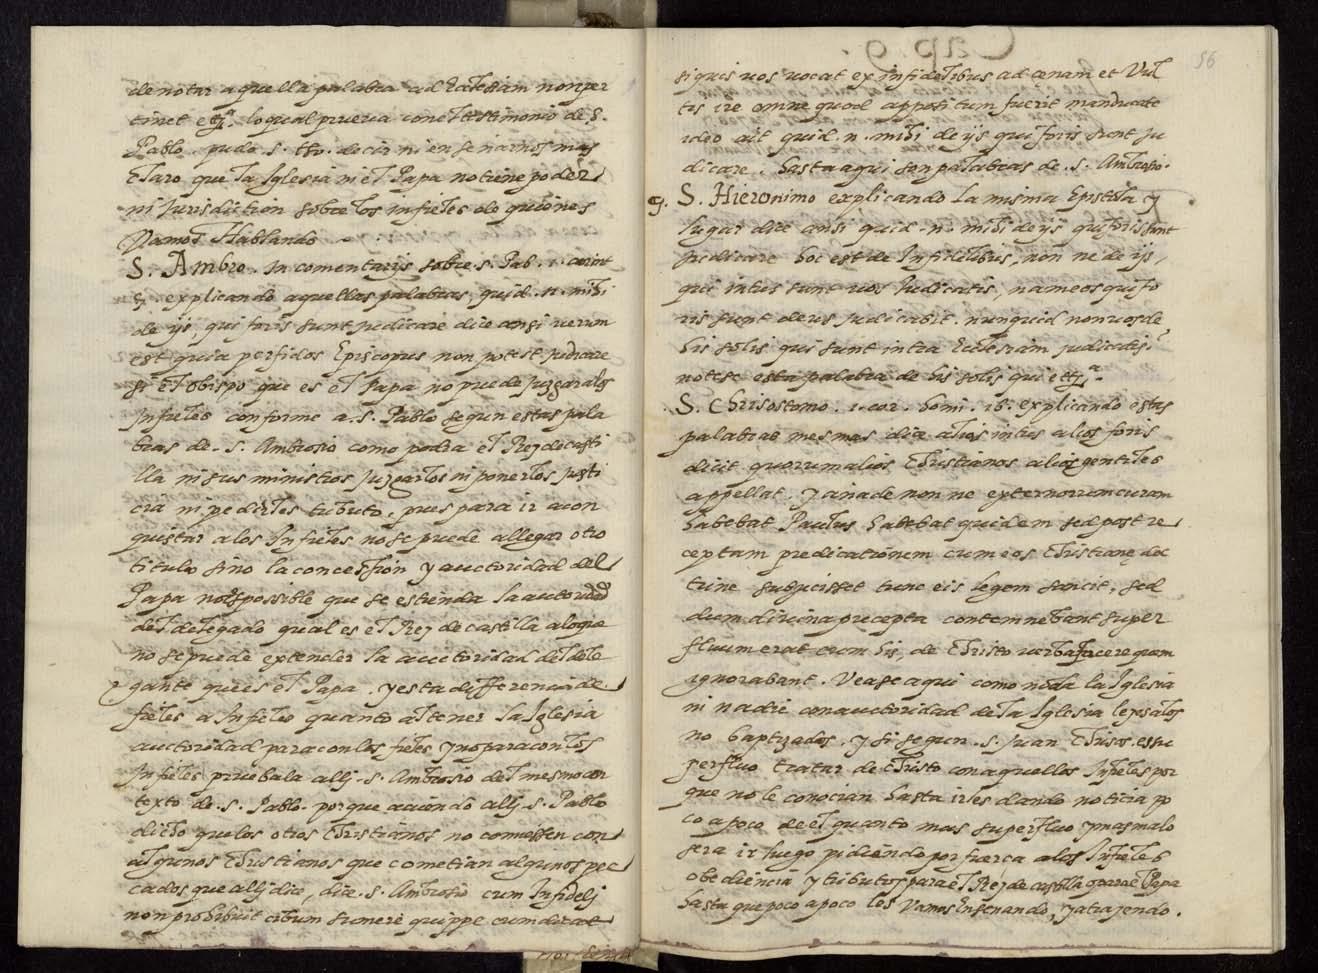 denotar aquella palabra ad Ecclesiam non per
tinet etcª. lo qual prueva con el testimonio de S.
Pablo. pudo. S. tho. decir ni enseñarnos mas
claro que la Iglesia ni el Papa no tiene poder
ni Jurisdiction sobre los infieles de quienes
Vamos Hablando
S. Ambro. In comentarijs sobre. s. Pab. 1. corint
5. explicando aquellas palabras quid. n. mihi
de ijs, qui foris sunt judicare dice ansi verum
est quia perfidos Episcopus non potest judicare
si el obispo que es el Papa no puede juzgar a los
Infieles conforme a. S. Pablo segun estas pala
bras de. S. Ambrosio como podra el Rey de casti
lla ni sus ministros Juzgarlos ni ponerlos justi
cia ni pedirles tributo. pues para ir a con
quistar a los Infieles no se puede allegar otro
titulo sino la concession y auctoridad del
Papa no es possible que se estienda la autoridad
del delegado qual es el Rey de castilla a lo que
no se puede extender la auctoridad del dele
gante que es el Papa. y esta differencia de
fieles a Infieles quanto al tener la Iglesia
auctoridad para con los fieles y no para con los
Infieles pruebala allj. s. Ambrosio del mesmo con
texto de. s. Pablo. porque aviendo allj. s. Pablo
dicho que los otros christianos no comiessen con
algunos christianos que cometian algunos pec
cados que allj dice, dice. s. Ambrosio cum Infidelj
non prohibuit cibum sumere quippe cum dicat
Cap. 9.
56
si quis vos vocat ex infidelibus ad cenam et Vul
tis ire omne quod appositum fuerit manducate
ideo ait quid. n. mihi de ijs qui foris sunt ju
dicare. hasta aqui son palabras de. s. Ambrosio.
9. S. Hieronimo explicando la misma Epistola y
lugar dice ansi quid. n. mihi de ijs qui foris sunt
judicare hoc est de Infidelibus, non ne de ijs,
qui intus sunt vos Judicatis, nam eos qui fo
ris sunt deus judicabit. nunquid non vos de
his solis qui sunt intra Ecclesiam judicatis?
notese esta palabra de his solis qui etcª.
S. Chrisostomo. 1. cor. homi. 16. explicando estas
palabras mesmas dice alios intus alios foris
dicit quorum alios Christianos alios gentiles
appellat. y añade non ne externorum curam
habebat Paulus habebat quidem sed post re
ceptam predicationem cum eos Christianę doc
trine subjecisset tunc eis legem sancit, sed
dum divina precepta contemnebant super
fluum erat cum his, de Christo verba facere quem
ignorabant. Vease aqui como no da la Iglesia
ni nadie con auctoridad de la Iglesia leyes a los
no baptizados. y si segun. s. Juan Chriso. es su
perfluo tratar de Christo con aquellos Infieles por
que no le conocian hasta irles dando noticia po
co a poco de el quanto mas superfluo y mas malo
sera ir luego pidiendo por fuerça a los Infieles
obediencia y tributos para el Rey de castilla o para el Papa
hasta que poco a poco los Vamos Insenando, y atrajendo.